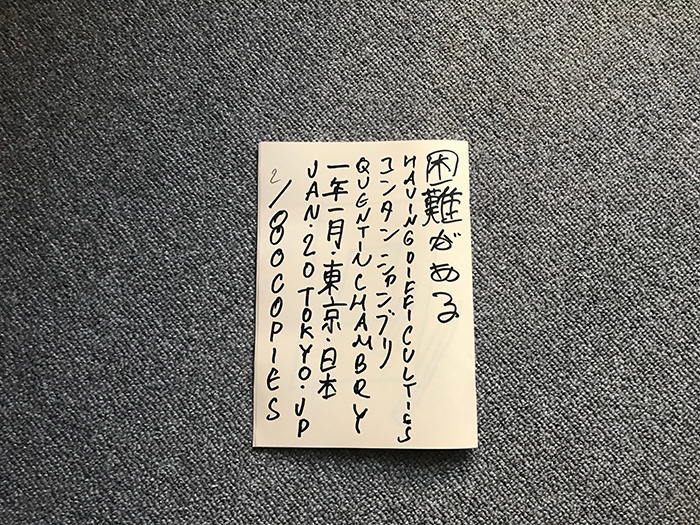 困難がある
HAVING DIFFICULTIES
コンタン シャンブリ
QUENTIN CHAMBRY
一年一月・東京・日本
JAN・20 TOKYO・JP
2/80 COPIES